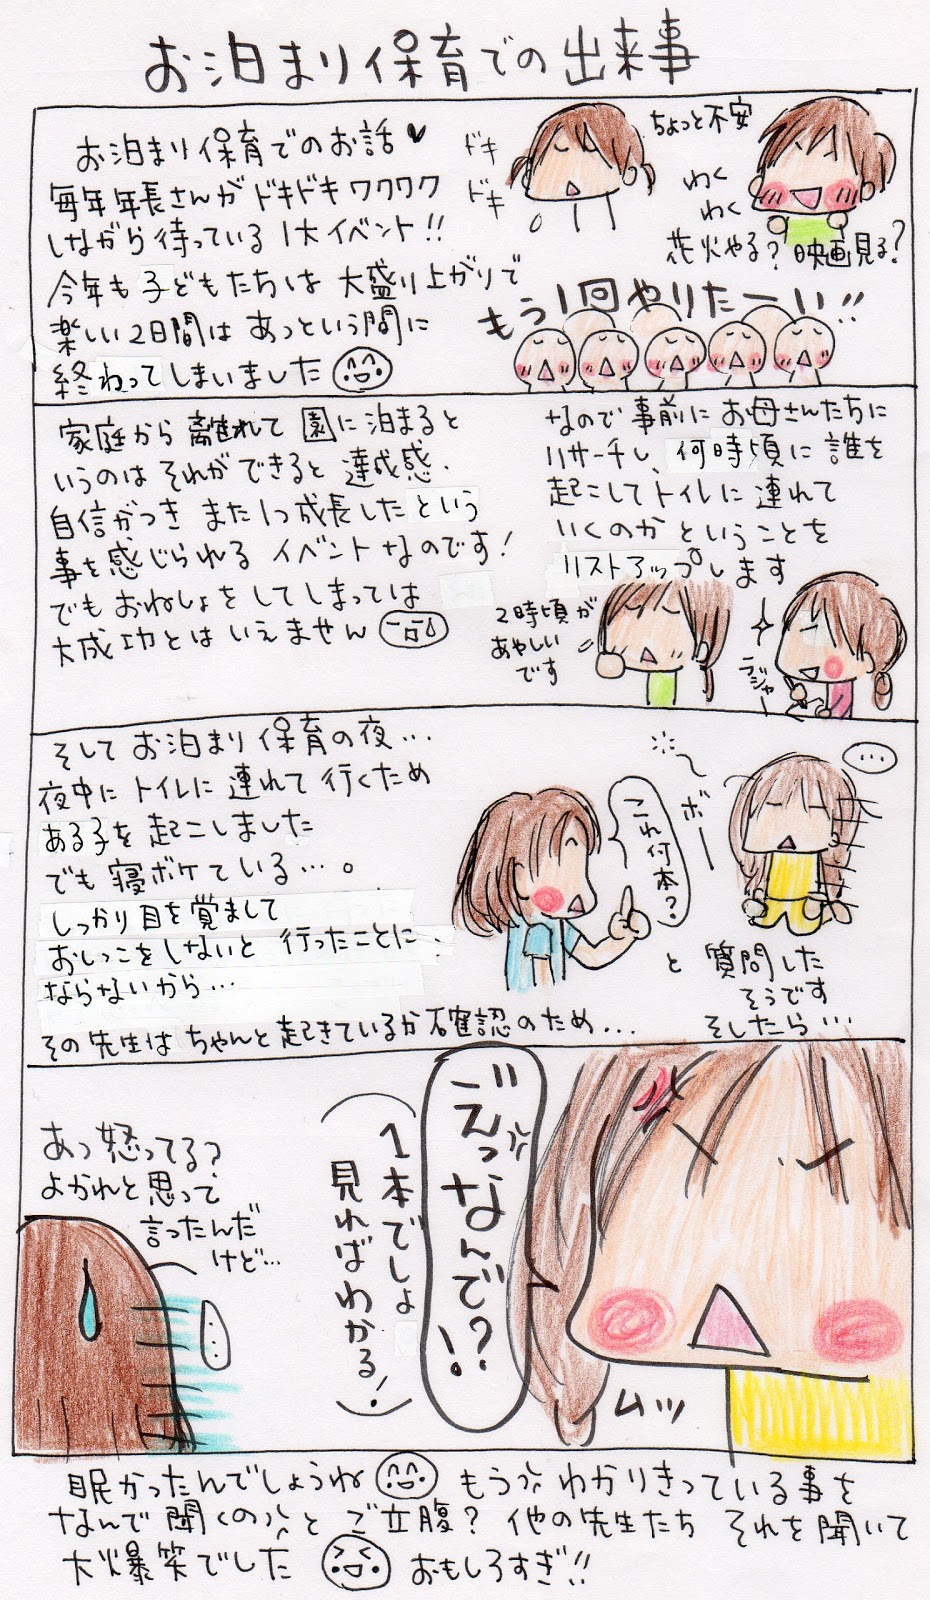 お泊まり保育での出来事
お泊まり保育でのお話♥
毎年年長さんがドキドキワクワク
しながら待っている1大イベント!!
今年も子どもたちは大盛り上がりで
楽しい2日間はあっという間に
終わってしまいました
ドキ
ドキ
ちょっと不安
わく
わく
花火やる?映画見る?
もう1回やりたーい!!
家庭から離れて園に泊まると
いうのはそれができると達成感、
自信がつきまた1つ成長したという
事を感じられるイベントなのです!
でもおねしょをしてしまっては
大成功とはいえません
なので事前にお母さんたちに
リサーチし、何時頃に誰を
起こしてトイレに連れて
いくのかということを
リストアップします
2時頃が
あやしい
です
ラジャー
そしてお泊まり保育の夜...
夜中にトイレに連れて行くため
ある子を起こしました
でも寝ボケている...。
しっかり目を覚まして
おしっこをしないと行ったことに
ならないから...
その先生はちゃんと起きているか確認のため...
これ何本?
ボー
...
と質問した
そうです
そしたら...
えっなんで?!
1本でしょ
見ればわかる!
あっ怒ってる?
よかれと思って
言ったんだ
けど...
...
ムッ
眠かったんでしょうね もうわかりきっている事を
なんで聞くのとご立腹?他の先生たちそれを聞いて
大爆笑でした おもしろすぎ!!